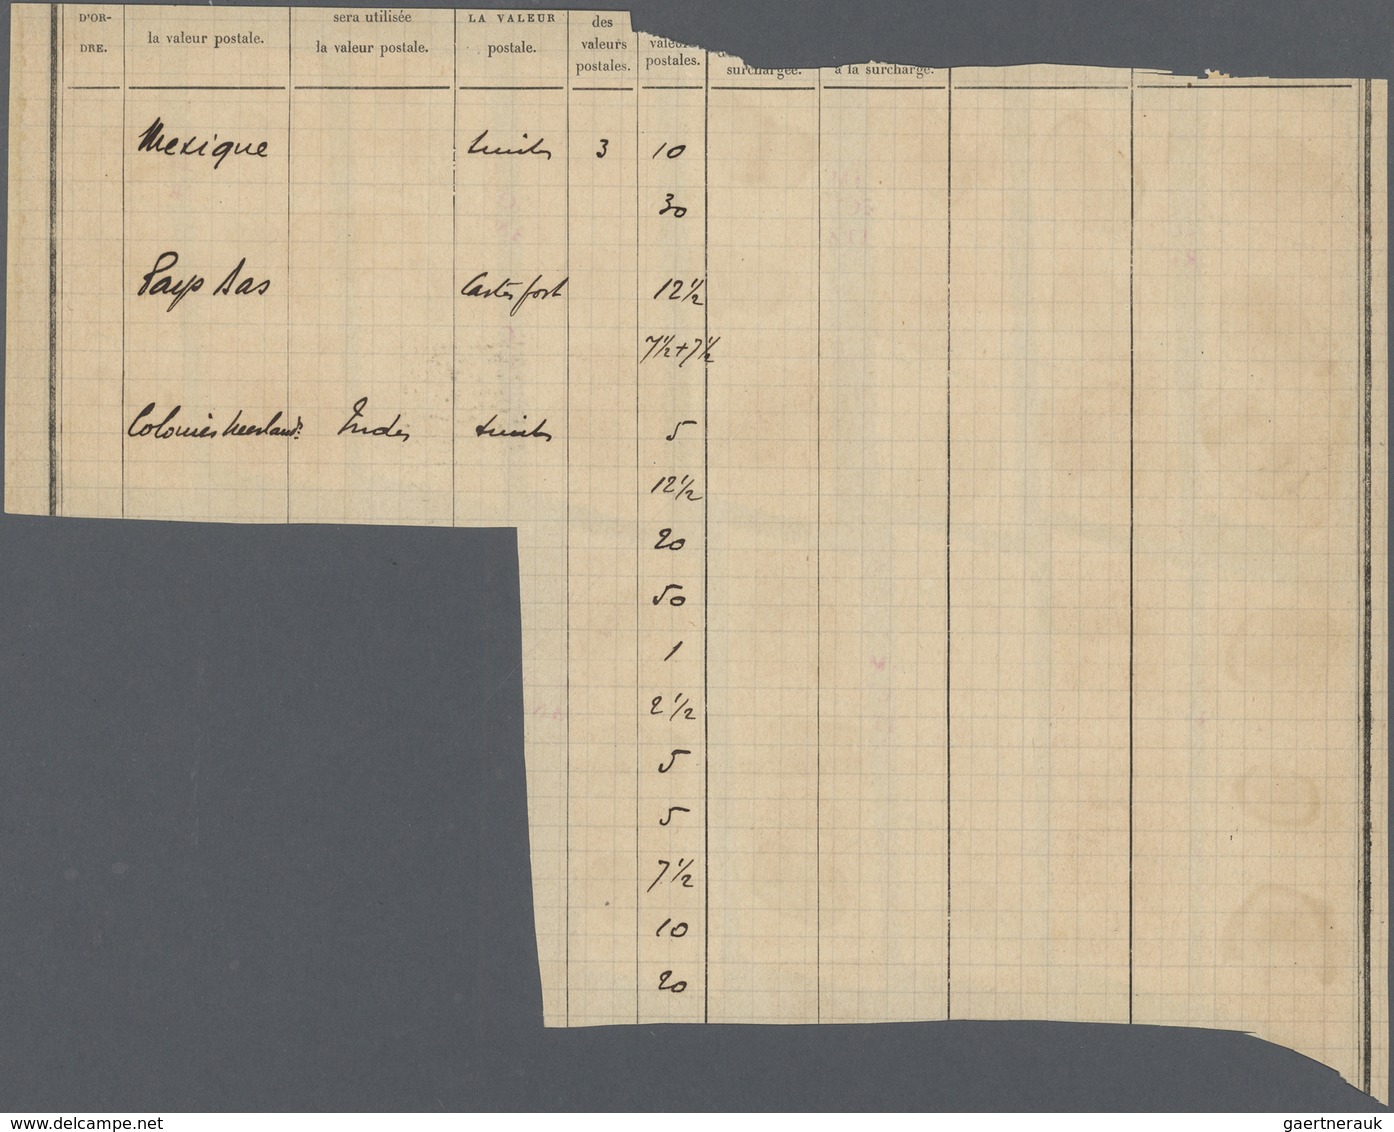 D'OR-
DRE.
la valeur postale.
sera utilisée
la valeur postale.
LA VALEUR
postale.
des
valeurs
postales.
valeurs
postales.
surchargée.
à la surcharge.
Mexique timbres 3 10
30
Pays Bas Cartes post 12½
7½+7½
Colonies Neerland. Indes timbres 5
12½
20
50
1
2½
5
5
7½
10
20
delcampe.net
gaertnerauk